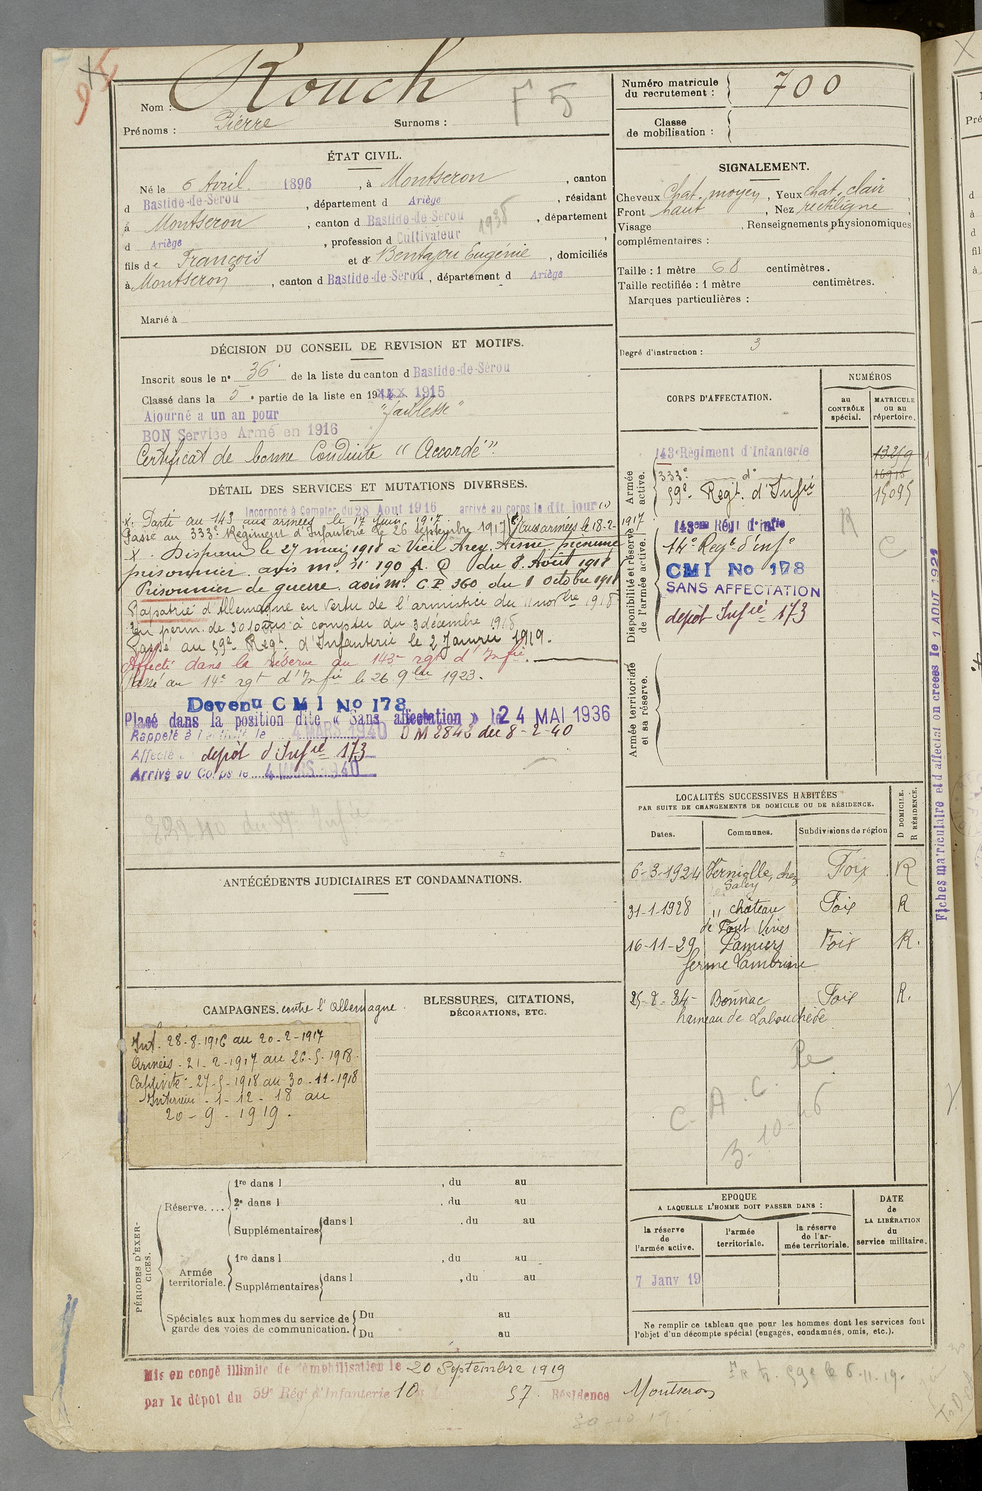 Nom : Rouch
F 5
Prénoms : Pierre Surnoms :
Numéro matricule du recrutement : 700
Classe de mobilisation :
ÉTAT CIVIL.
Né le 6 Avril 1896, à Montseron, canton
d Bastide-de-Sérou, département d Ariège, résidant
à Montseron, canton d Bastide-de-Sérou, département
1935
d Ariège, profession d Cultivateur
fils de François et de Bentajou Eugénie, domiciliés
à Montseron, canton d Bastide-de-Sérou, département d Ariège
Marié à
SIGNALEMENT.
Cheveux Chat. moyen, Yeux chat. clair
Front haut, Nez rectiligne
Visage , Renseignements physionomiques
complémentaires :
Taille : 1 mètre 68 centimètres.
Taille rectifiée : 1 mètre centimètres.
Marques particulières :
Degré d'instruction : 3
DÉCISION DU CONSEIL DE REVISION ET MOTIFS.
Inscrit sous le n° 36 de la liste du canton d Bastide-de-Sérou
Classé dans la 5e partie de la liste en 1915
Ajourné a un an pour "faiblesse"
BON Service Armé en 1916
Certificat de bonne Conduite "Accordé".
DÉTAIL DES SERVICES ET MUTATIONS DIVERSES.
Incorporé à Compter du 28 Aout 1916 arrivé au corps le dit jour
X. Parti au 143 aux armées le 17 juin 1917
Passé au 333e Régiment d'Infanterie le 26 septembre 1917 Aux armées le 18-2-1917
X. Disparu le 27 mai 1918 à Vieil Arcy, Aisne présumé
prisonnier avis Ml 31 190 A. D du 8 Août 1918
Prisonnier de guerre avis Ml C.P 360 du 8 Octobre 1918
Rapatrié d'Allemagne en vertu de l'armistice du 11 novbre 1918
En perm. de 30 jours à compter du 3 décembre 1918
Passé au 59e Régt d'Infanterie le 2 Janvier 1919.
Affecté dans la réserve au 143e rgt d'Infie.
Passé au 14e rgt d'Infie le 26 9bre 1923.
Devenu CMI No 178
Placé dans la position dite « Sans affectation » le 24 MAI 1936
Rappelé à l'activité le 4 MARS 1940 DM 2842 du 8-2-40
Affecté dépôt d'Infie 173
Arrivé au Corps le 4 MARS 1940
CORPS D'AFFECTATION.
NUMÉROS
au CONTRÔLE spécial.
MATRICULE ou au répertoire.
Armée active.
143e Régiment d'Infanterie
333e d°
59e Régt. d'Infie 15095
Disponibilité et réserve de l'armée active.
143ème Régt d'Infie
14e Régt d'Infie
CMI No 178
SANS AFFECTATION
dépôt Infie 173
R
C
Armée territoriale et sa réserve.
Fiches matriculaire et d'affectation créées le 1 AOUT 1921
ANTÉCÉDENTS JUDICIAIRES ET CONDAMNATIONS.
LOCALITÉS SUCCESSIVES HABITÉES
PAR SUITE DE CHANGEMENTS DE DOMICILE OU DE RÉSIDENCE.
Dates. Communes. Subdivisions de région D DOMICILE. R RÉSIDENCE.
6-3-1924 Verniolle, chez Saley Foix R
31-1-1928 " château de Fout Vives Foix R
16-11-29 Pamiers ferme Cambrine Foix R.
25-2-34- Bonnac hameau de Labouchède Foix R.
C. A. C. Pe
3-10-46
CAMPAGNES. contre l'Allemagne.
Int. 28-8-1916 au 20-2-1917
Armées - 21-2-1917 au 26-5-1918
Captivité - 27-5-1918 au 30-11-1918
Intérieur - 1-12-18 au
20-9-1919.
BLESSURES, CITATIONS,
DÉCORATIONS, ETC.
PÉRIODES D'EXERCICES.
Réserve....
1re dans l , du au
2e dans l , du au
Supplémentaires dans l , du au
Armée territoriale.
1re dans l , du au
Supplémentaires dans l , du au
Spéciales aux hommes du service de garde des voies de communication.
Du au
Du au
EPOQUE
A LAQUELLE L'HOMME DOIT PASSER DANS :
la réserve de l'armée active.
l'armée territoriale.
la réserve de l'armée territoriale.
DATE DE LA LIBÉRATION du service militaire.
7 Janv 19
Ne remplir ce tableau que pour les hommes dont les services font
l'objet d'un décompte spécial (engagés, condamnés, omis, etc.).
Mis en congé illimité de démobilisation le 20 Septembre 1919
par le dépôt du 59e Régt d'Infanterie 10 57 Résidence Montseron